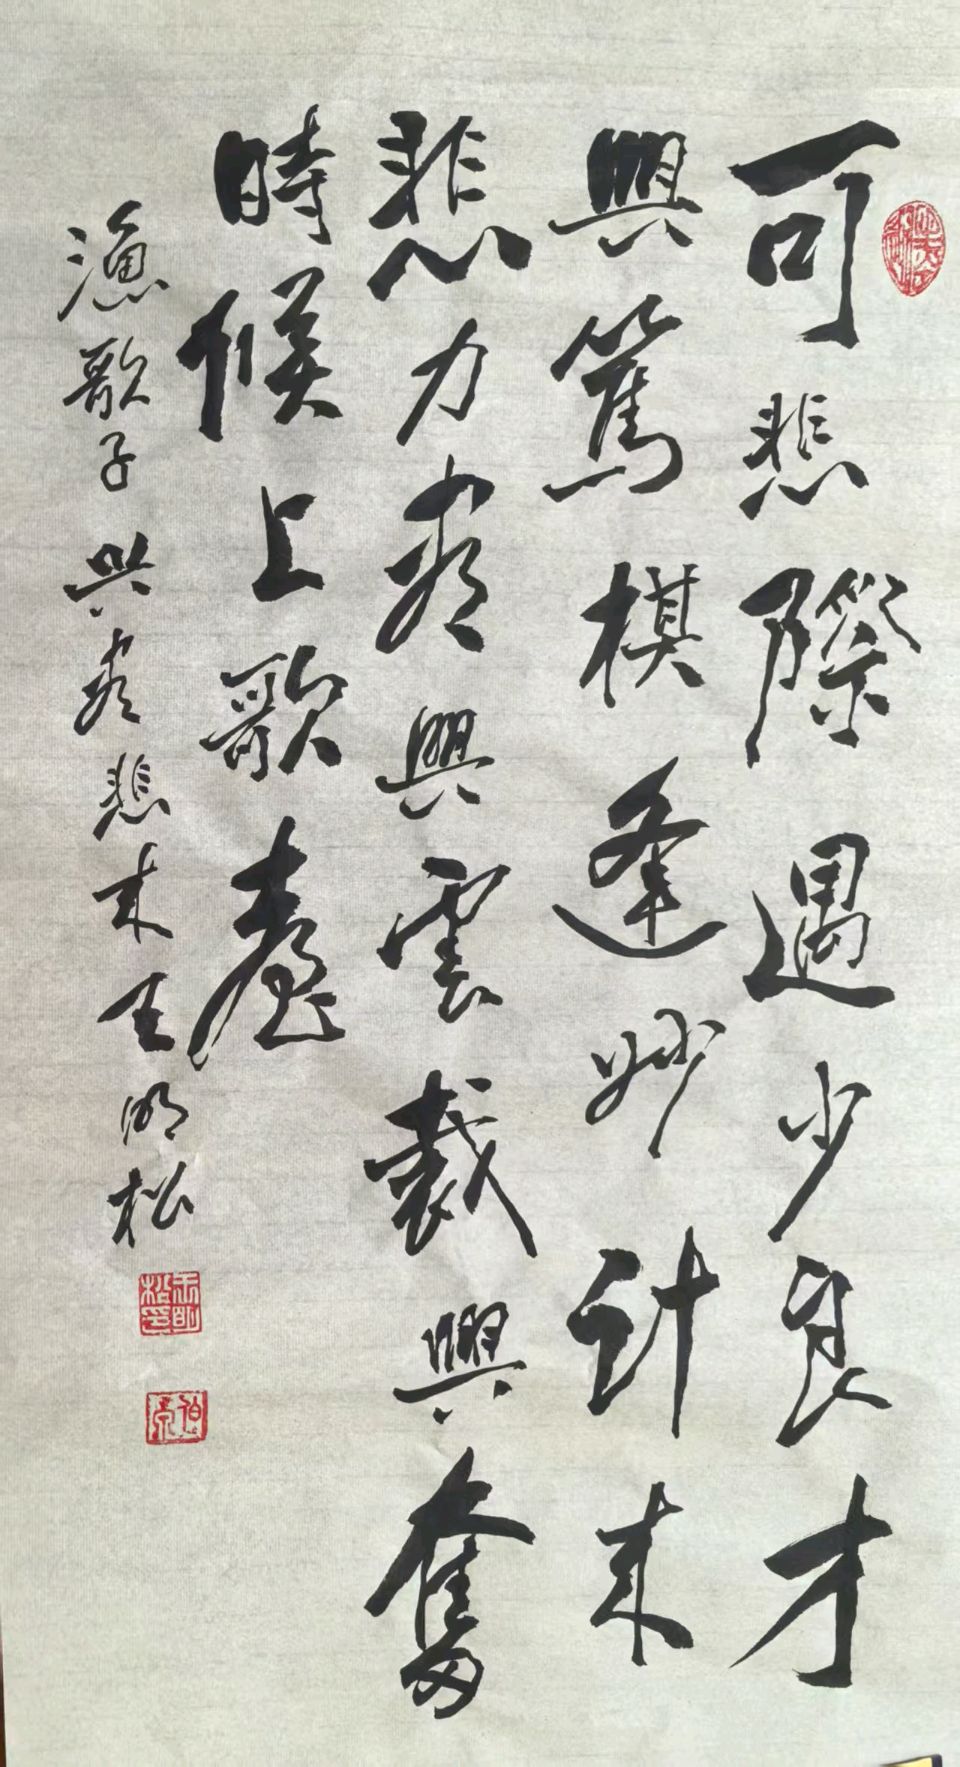 可悲際遇少良才
興篤棋逢妙計來
悲力盡興雲裁興奮
時候上歌臺
漁歌子 興盡悲來 王明松
王明松印